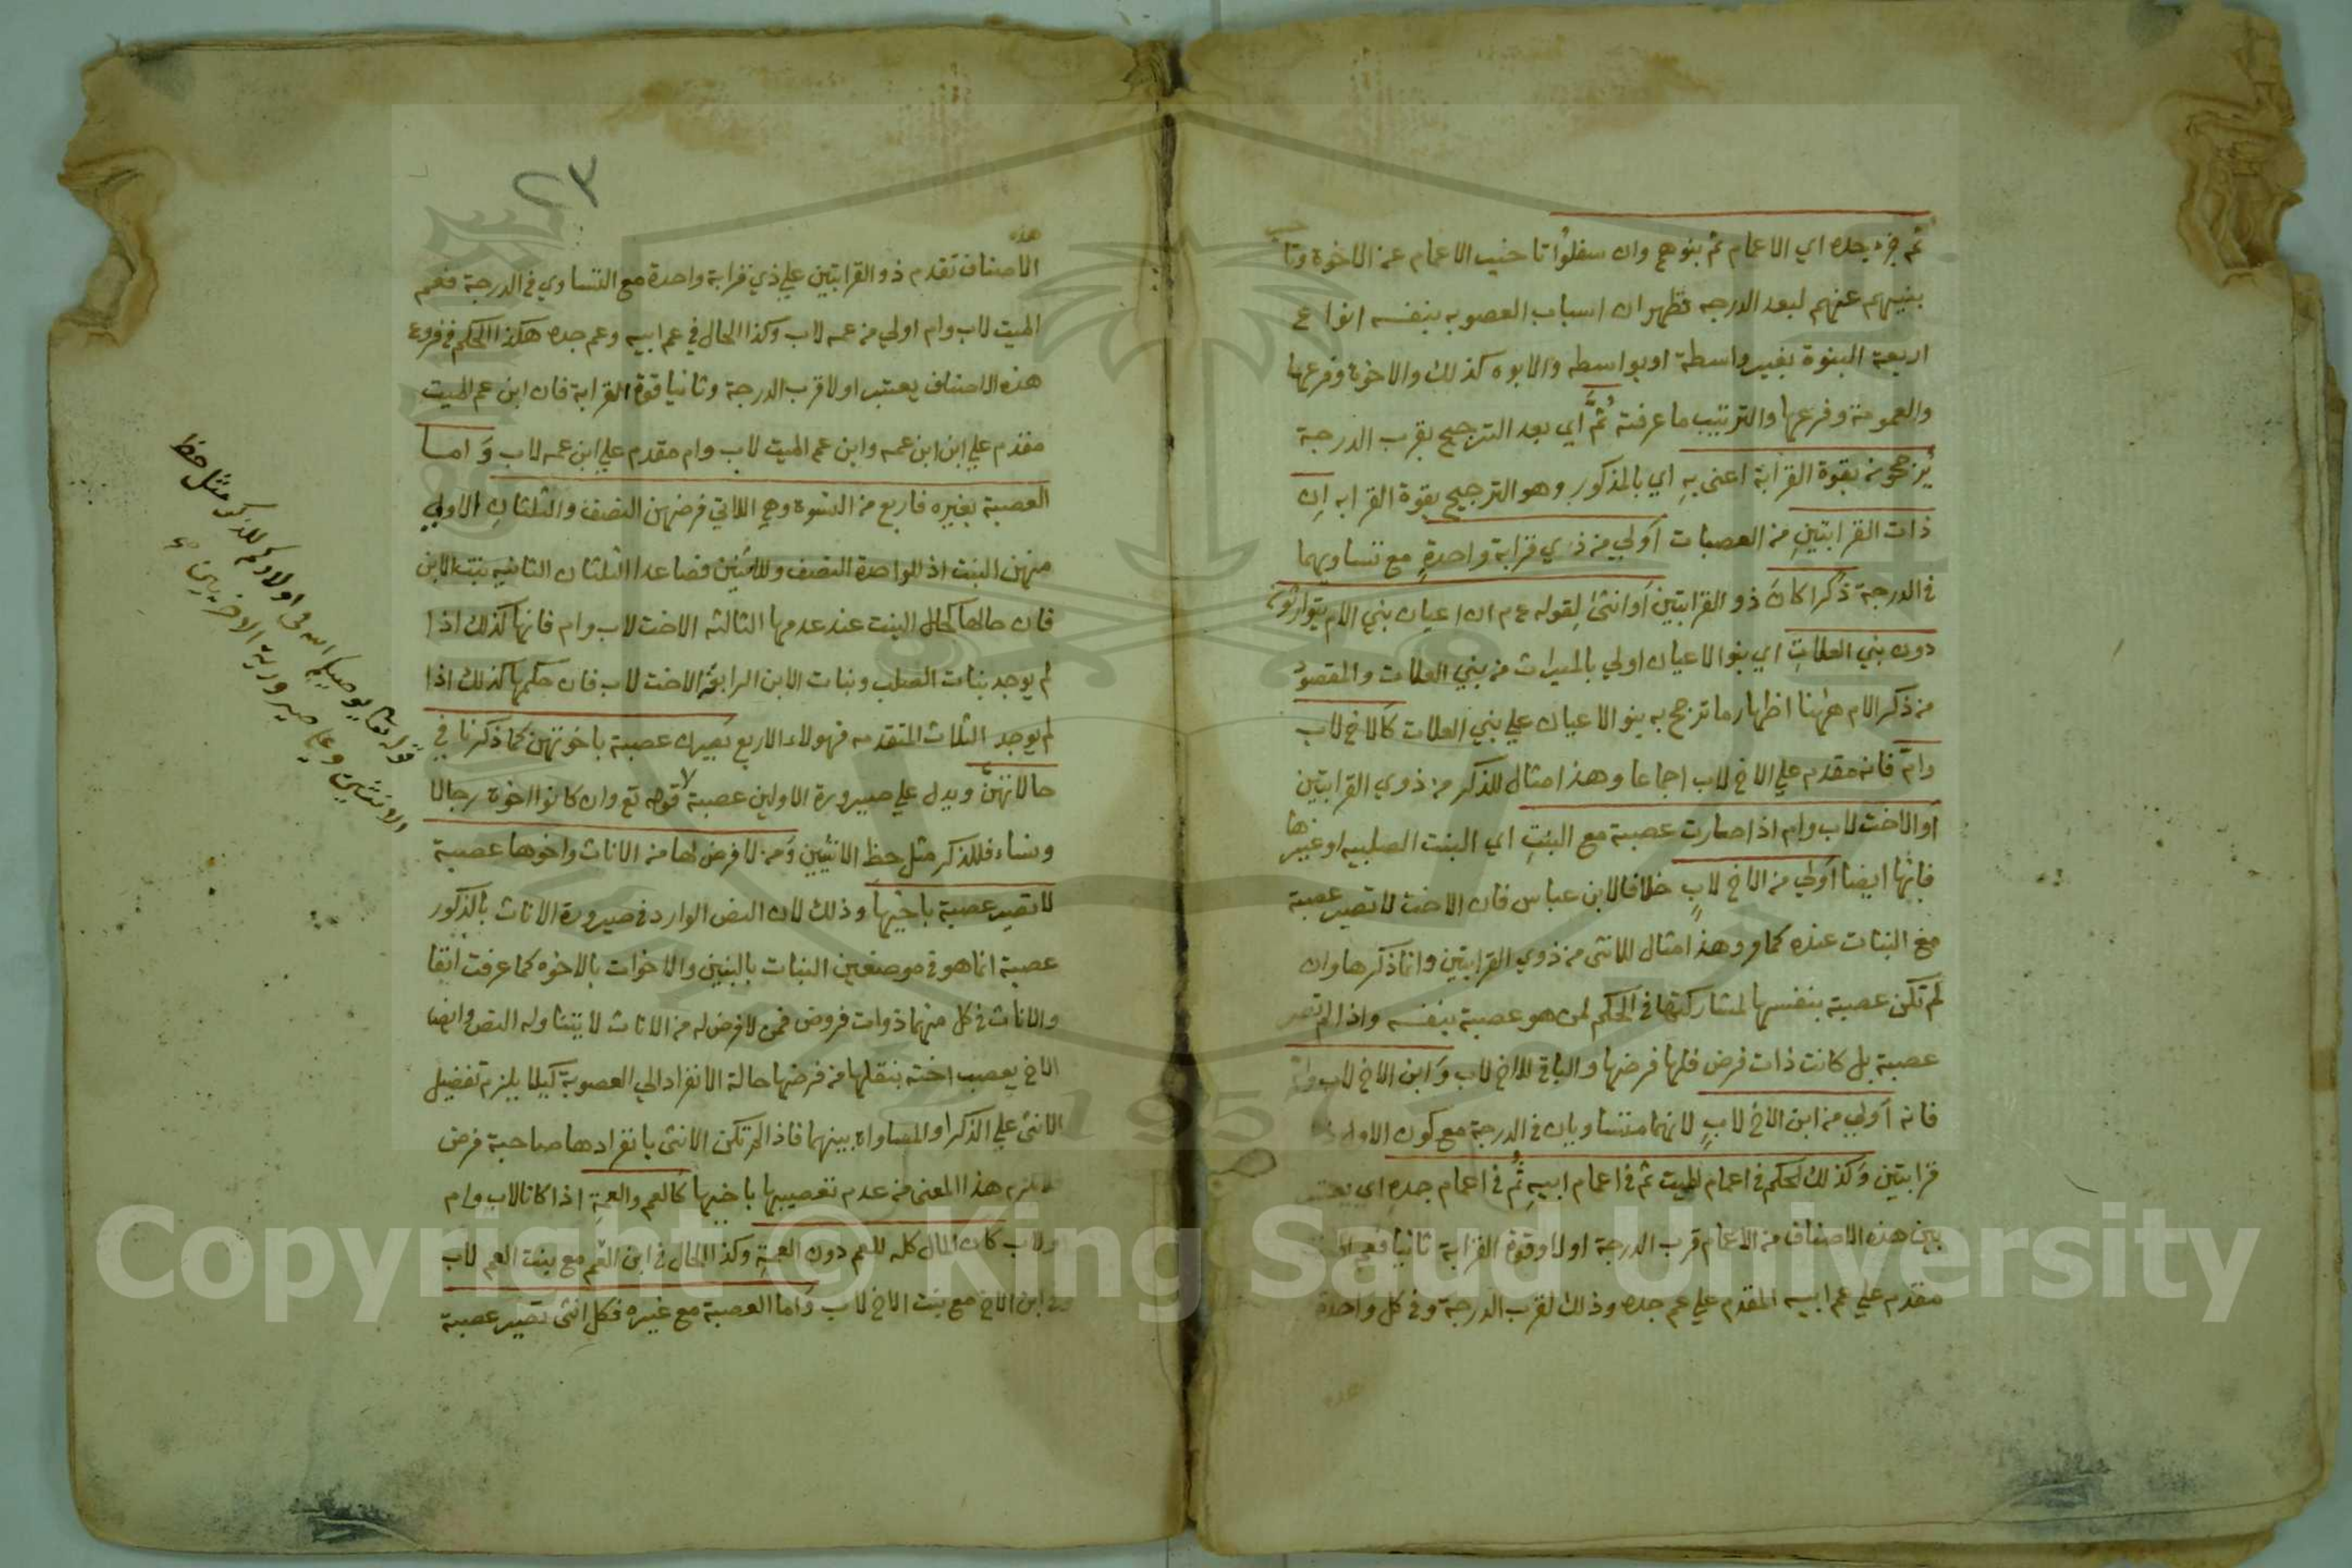 ثم جزء جده اي الاعمام ثم بنوهم وان سفلوا تاخير الاعمام عن الاخوة وتا
بنيهم عنهم لبعد الدرجه فظهر ان اسباب العصوبه بنفسه انواع
اربعة البنوة بغير واسطة او بواسطه والابوه كذلك والاخوة وفرعها
والعمومة وفرعها والترتيب ما عرفته ثم اي بعد الترجيح بقرب الدرجة
يرجحون بقوة القرابة اعني به اي بالمذكور وهو الترجيح بقوة القرابه ان
ذات القرابتين من العصبات اولي من ذي قرابة واحدة مع تساويهما
في الدرجة ذكرا كان ذو القرابتين او انثى لقوله عم ان اعيان بني الام يتوارثون
دون بني العلات اي بنوا الاعيان اولي بالميراث من بني العلات والمقصود
من ذكر الام ههنا اظهار ما ترجح به بنو الاعيان علي بني العلات كالاخ لاب
وام فانه مقدم علي الاخ لاب اجماعا وهذا مثال للذكر من ذوي القرابتين
او الاخت لاب وام اذا صارت عصبة مع البنت اي البنت الصلبيه او غيرها
فانها ايضا اولي من الاخ لاب خلافا لابن عباس فان الاخت لا تصير عصبة
مع البنات عنده كما مر وهذا مثال للانثى من ذوي القرابتين وانما ذكرها وان
لم تكن عصبة بنفسها لمشاركتها في الحكم لمن هو عصبة بنفسه واذا لم تصر
عصبة بل كانت ذات فرض فلها فرضها والباقي للاخ لاب وابن الاخ لاب وام
فانه اولي من ابن الاخ لاب لانهما متساويان في الدرجة مع كون الاول
قرابتين وكذلك الحكم في اعمام الميت ثم في اعمام ابيه ثم في اعمام جده اي يعتبر
بين هذه الاصناف من الاعمام قرب الدرجة اولا وقوة القرابة ثانيا فعم الميت
مقدم علي عم ابيه المقدم علي عم جده وذلك لقرب الدرجة وفي كل واحدة
هذه
٢٣
هذه
الاصناف تقدم ذو القرابتين علي ذي قرابة واحدة مع التساوي في الدرجة فعم
الميت لاب وام اولي من عمه لاب وكذا الحال في عم ابيه وعم جده هكذا الحكم في فروع
هذه الاصناف يعتبر اولا قرب الدرجة وثانيا قوة القرابة فان ابن عم الميت
مقدم علي ابن ابن عمه وابن عم الميت لاب وام مقدم علي ابن عمه لاب واما
العصبة بغيره فاربع من النسوة وهي اللاتي فرضهن النصف والثلثان الاولي
منهن البنت اذ للواحدة النصف وللثنتين فصاعدا الثلثان الثانيه بنت الابن
فان حالها كحال البنت عند عدمها الثالثه الاخت لاب وام فانها كذلك اذا
لم يوجد بنات الصلب وبنات الابن الرابعة الاخت لاب فان حكمها كذلك اذا
لم يوجد الثلاث المتقدمه فهولاء الاربع يصرن عصبة باخوتهن كما ذكرنا في
حالاتهن ويدل علي صيرورة الاولين عصبة قوله تع وان كانوا اخوة رجالا
ونساء فللذكر مثل حظ الانثيين ومن لا فرض لها من الاناث واخوها عصبة
لا تصير عصبة باخيها وذلك لان النص الوارد في صيرورة الاناث بالذكور
عصبة انما هو في موضعين البنات بالبنين والاخوات بالاخوه كما عرفت انفا
والاناث في كل منهما ذوات فروض فمن لا فرض له من الاناث لا يتناوله النص وايضا
الاخ يعصب اخته بنقلها من فرضها حالة الانفراد الي العصوبة كيلا يلزم تفضيل
الانثى علي الذكر او المساواة بينهما فاذا لم تكن الانثى بانفرادها صاحبة فرض
هذا المعنى من عدم تعصيبها باخيها كالعم والعمة اذا كانا لاب وام
او لاب كان المال كله للعم دون العمة وكذا الحال في ابن العم مع بنت العم لاب
وفي ابن الاخ مع بنت الاخ لاب واما العصبة مع غيره فكل انثى تصير عصبة
قوله تعالى يوصيكم الله في اولادكم للذكر مثل حظ
الانثيين وعلى صيرورة الاخريين
Copyright © King Saud University
1957